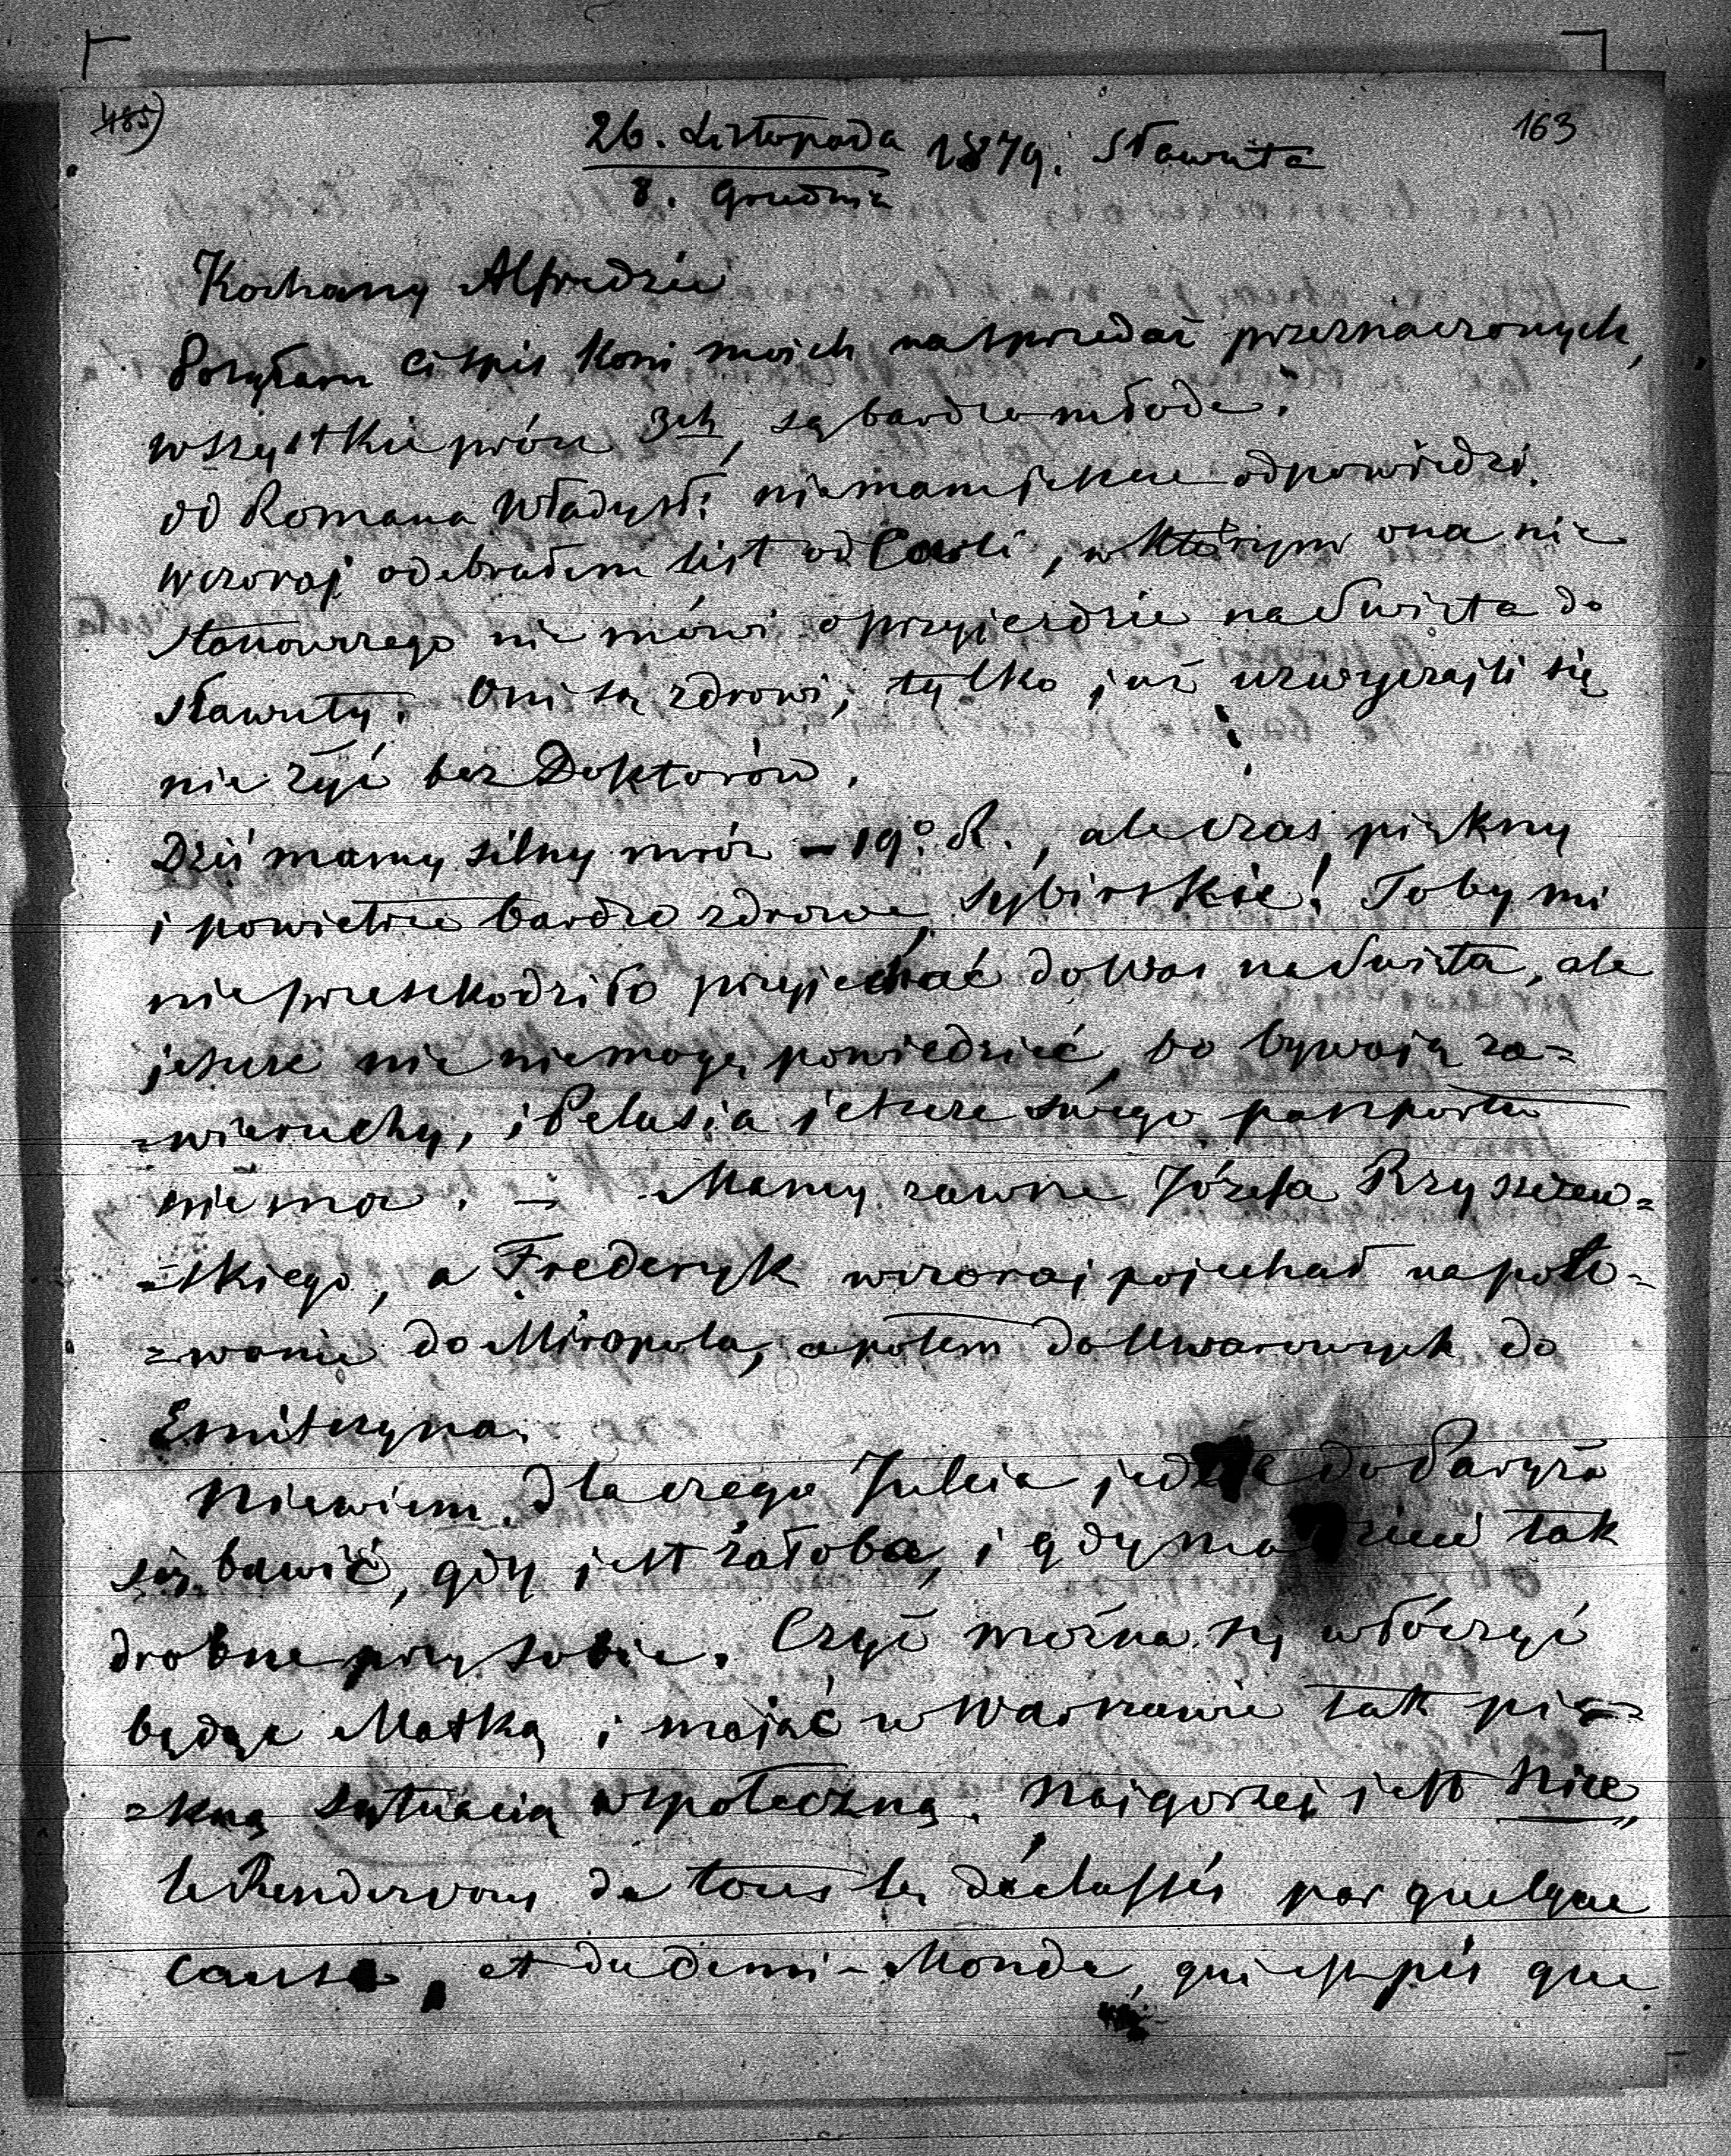 485)
163
26. Listopada 1879. Sławuta
8. Grudnia
Kochany Alfredzie
Posyłam Ci spis koni moich na sprzedaż przeznaczonych,
wszystkie prócz 3ch, są bardzo młode.
od Romana Władysł: niemam jeszcze odpowiedzi.
Wczoraj odebrałem list od , w którym ona nic
stanowczego nie mówi o przyjezdzie na Swięta do
Sławuty. Oni są zdrowi, tylko już uzwyczajili się
nie żyć bez Doktorów.
Dziś mamy silny mróz – 19.° R., ale czas piękny
i powietrze bardzo zdrowe, Sybirskie! To by mi
nie przeszkodziło przyjechać do Was na Swięta, ale
jeszcze nic niemogę powiedzieć, bo bywają za=
=wieruchy, i Pelasia jeszcze swego paszportu
niema. – Mamy zawsze Józefa Rzyszczew=
=skiego, a Frederyk wczoraj pojechał na polo=
=wanie do Miropola, a potem do Uwarowych do
Emilczyna.
Niewiem, dla czego Julcia jedzie do Paryża
się bawić, gdy jest żałoba, i gdy ma dzieci tak
drobne przy sobie. Czyż można się włóczyć
będąc Matką i mając w Warszawie tak pię=
=kną sytuacią społeczną. Najgorzej jest Nice,
le Rendezvous de tous les déclassés par quelque
cause, et du demi-Monde, qui est pis que